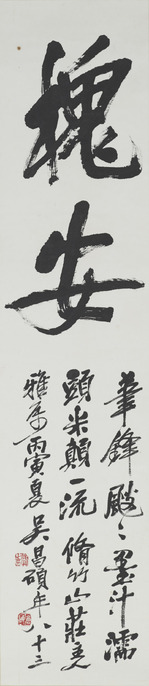 槐安
筆鋒颼〻墨汁濡
頭米顛一流脩竹山莊主
雅屬丙寅夏吳昌碩年八十三